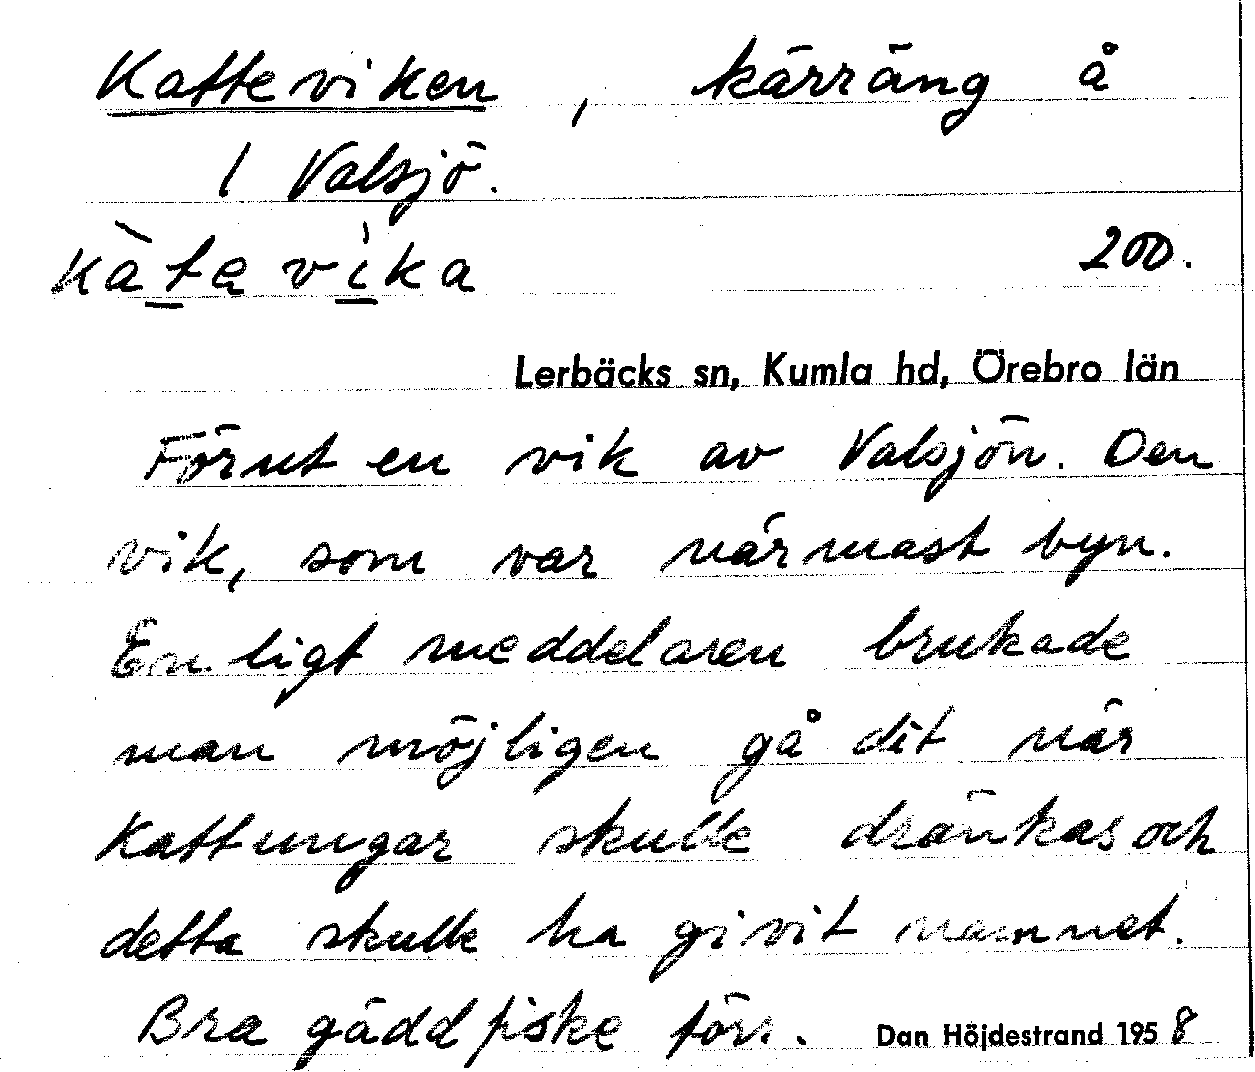 Katteviken, kärräng å
1 Valsjö.
kàtavìka
200.
Lerbäcks sn, Kumla hd, Örebro län
Förut en vik av Valsjön. Den
vik, som var närmast byn.
Enligt meddelaren brukade
man möjligen gå dit när
kattungar skulle dränkas och
detta skulle ha givit namnet.
Bra gäddfiske förr.
Dan Höjdestrand 1958